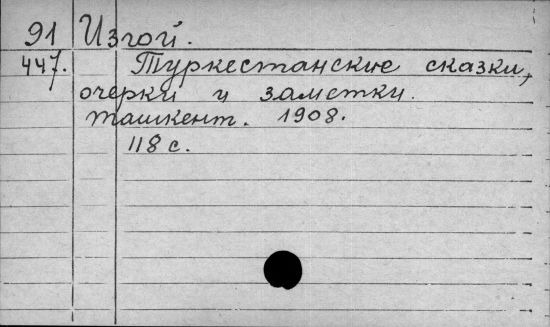 91 Изгой.
447. Туркестанские сказки,
очерки и заметки.
Ташкент. 1908.
118 с.